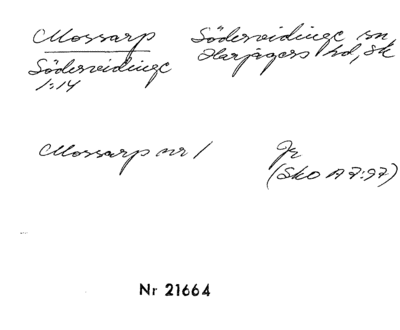 Mossarp Södervidinge sn,
Harjagers hd, Sk
Södervidinge
1:14
Mossarp nr 1 Jr
(Sko A 7:97)
Nr 21664